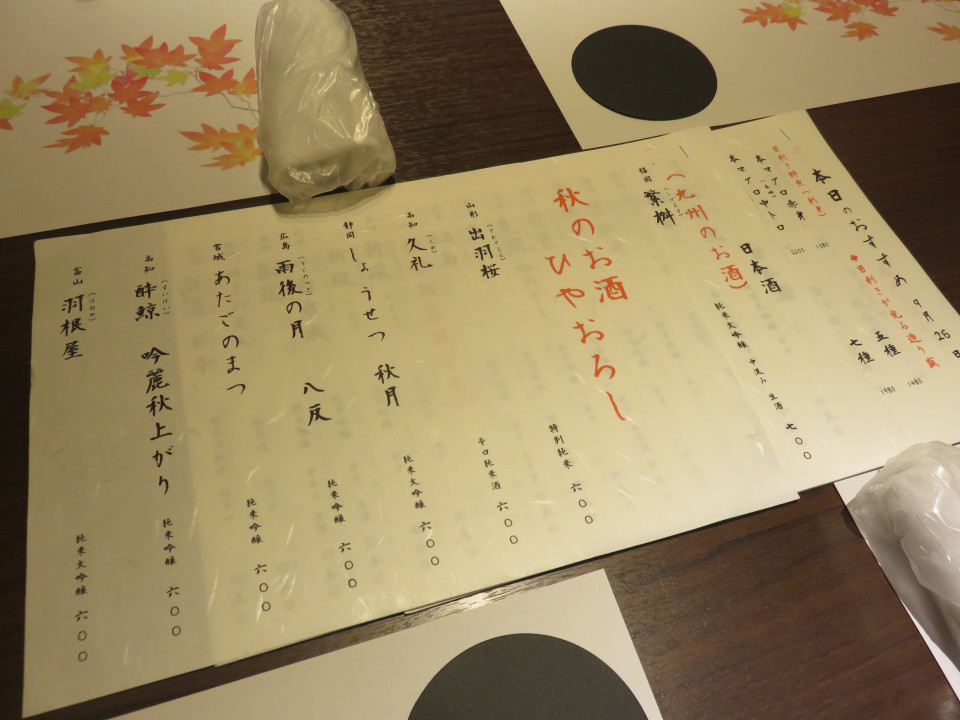 本日のおすすめ 9月26
目利き鮮魚(刺身) ◆目利きが光る造り盛
本マグロ赤身 五種 1480
本マグロ中トロ 七種 1980
日本酒
(九州のお酒)
福岡 繁桝(しげます) 純米大吟醸 中汲み 生酒 七〇〇
秋のお酒
ひやおろし
山形 出羽桜(でわざくら) 特別純米 六〇〇
高知 久礼(くれ) 辛口純米酒 六〇〇
静岡 しょうせつ 秋月 純米大吟醸 六〇〇
広島 雨後の月(うごのつき) 八反 純米吟醸 六〇〇
宮城 あたごのまつ 純米吟醸 六〇〇
高知 酔鯨(すいげい) 吟麗秋上がり 純米吟醸 六〇〇
富山 羽根屋(はねや) 純米大吟醸 六〇〇